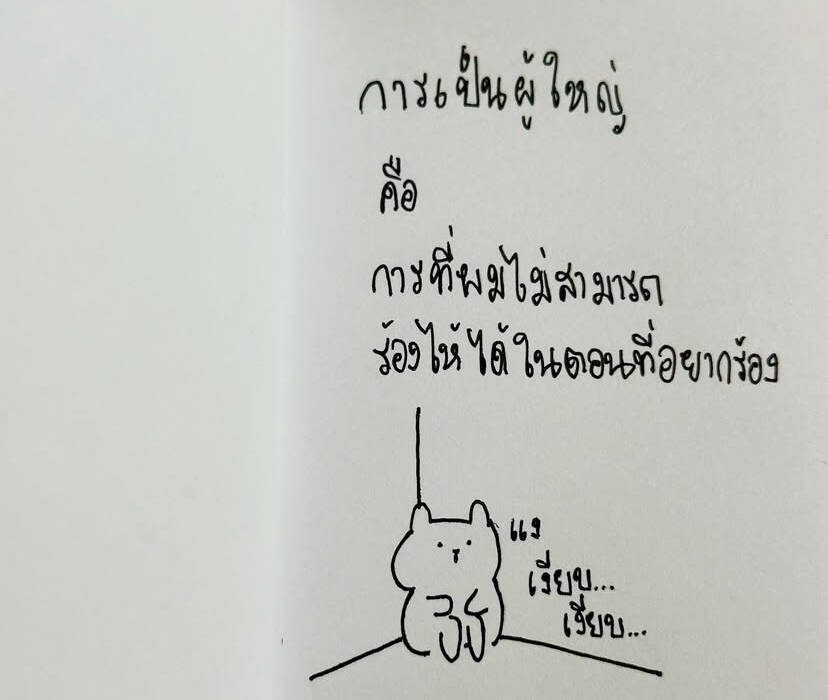 การเป็นผู้ใหญ่
คือ
การที่ผมไม่สามารถ
ร้องไห้ได้ในตอนที่อยากร้อง
แง
เงียบ...
เงียบ...